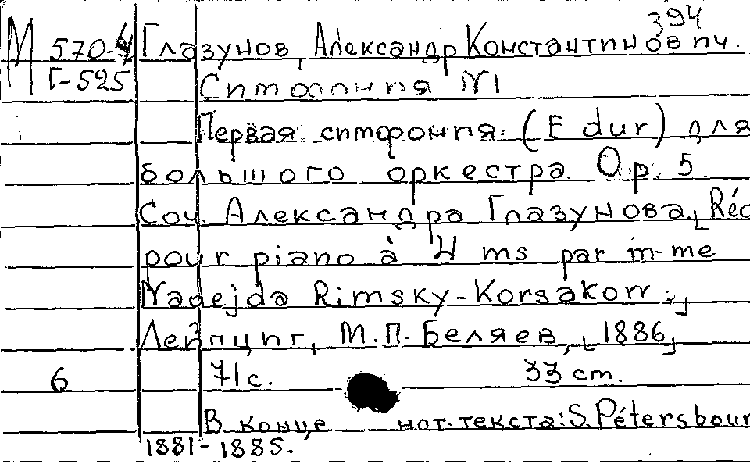 394
М 570-4 Глазунов, Александр Константинович.
Г-525 Симфония N1
Первая симфония (E dur) для
большого оркестра. Op. 5
Соч. Александра Глазунова. [Réd
pour piano à 4 ms par m-me
Nadejda Rimsky-Korsakow.]
Лейпциг, М.П. Беляев, [1886]
6 71 с. 33 cm.
В конце нот. текста: S. Pétersbour
1881-1885.